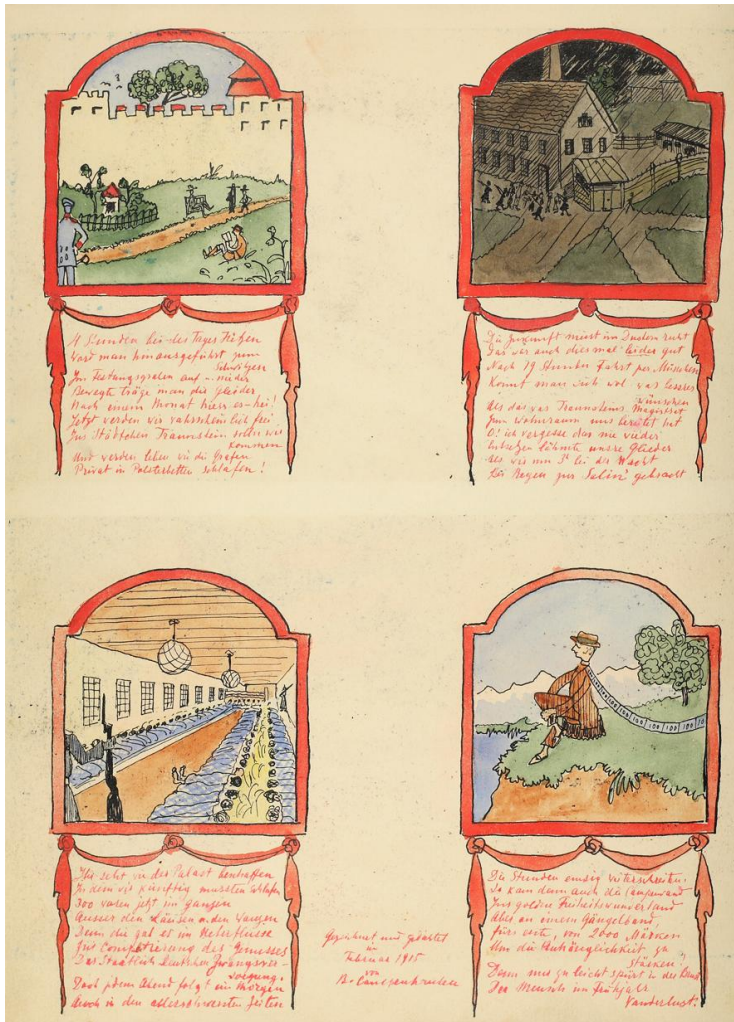 4 Stunden bei des Tages
Ward man hinausgeführt zum
Im Festungsgraben auf – nieder
Bewegte träge man die Glieder
Nach einem Monat hiess es – hei!
Jetzt werden wir wahrscheinlich frei
Ins Städtchen Traunstein solln wir
kommen
Und werden leben wie die Grafen
Privat in Polsterbetten schlafen!
Die Zukunft meint im Dustern nicht
Das wir auch diesmal leider gut
Nach 19 Stunden Fahrt per München
Konnt man sich wol was besseres
wünschen
Als das was Traunsteins Magistrat
Zum Wohnraum uns bereitet hat
O! ich vergesse das nie wieder
Entsetzen lähmte unsre Glieder
Als wir um 3h bei der Nacht
Bei Regen zur "Salin" gebracht
Hier seht wie der Palast beschaffen
In dem wir künftig mussten schlafen
300 waren jetzt im ganzen
Ausser den Läusen und den Wanzen
Denn die gab es im Ueberflusse
Zur Completierung des Genusses
Das Staatlich Deutschen Zwangsver-
sorgung.
Doch jedem Abend folgt ein Morgen
Auch in den allerschwarzten Zeiten
Gezeichnet und gedichtet
im
Februar 1915
von
Die Stunden emsig weiterschreiten
So kam denn auch die
Ins goldne Freiheitswunderland
Aber an einem Gängelband,
fürs erste, von 2000 Märken
Um die Anhänglichkeit zu
stärken!
Denn nur zu leicht spürt in der
Der Mensch im Frühjahr
Wanderlust!
100 100 100 100 100 100